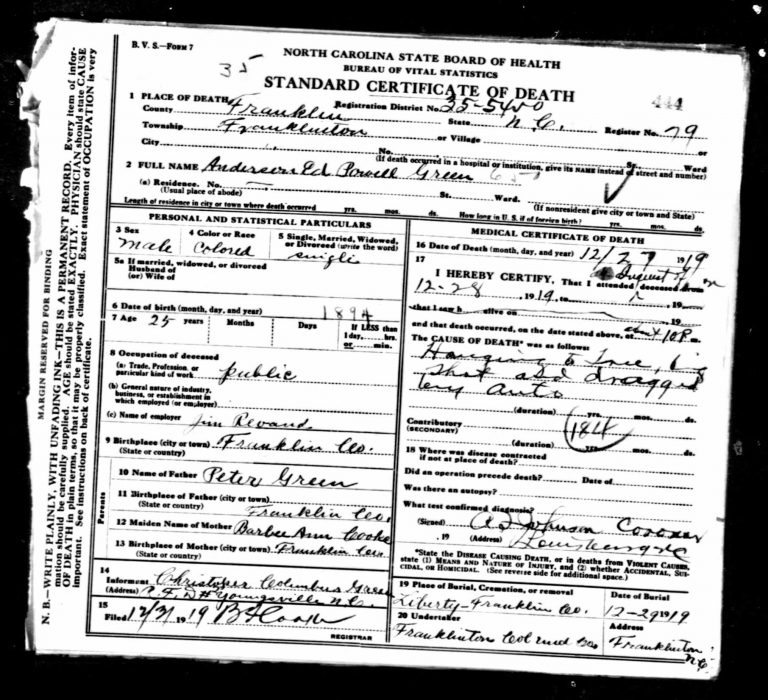 B. V. S.—Form 7
35
NORTH CAROLINA STATE BOARD OF HEALTH
BUREAU OF VITAL STATISTICS
STANDARD CERTIFICATE OF DEATH
444
1 PLACE OF DEATH
County Franklin Registration District No. 35-5450 State N.C. Register No. 79
Township Franklinton or Village or
City No. St. Ward
(If death occurred in a hospital or institution, give its NAME instead of street and number)
2 FULL NAME Anderson Ed Powell Green
(a) Residence. No. St. Ward.
(Usual place of abode) (If nonresident give city or town and State)
Length of residence in city or town where death occurred yrs. mos. ds. How long in U. S. if of foreign birth? yrs. mos. ds.
PERSONAL AND STATISTICAL PARTICULARS
3 Sex
male
4 Color or Race
Colored
5 Single, Married, Widowed, or Divorced (write the word)
single
5a If married, widowed, or divorced
Husband of
(or) Wife of
6 Date of birth (month, day, and year) 1894
7 Age 25 years Months Days
If LESS than
1 day, hrs.
or min.
8 Occupation of deceased
(a) Trade, Profession, or
particular kind of work public
(b) General nature of industry,
business, or establishment in
which employed (or employer)
(c) Name of employer Jim
9 Birthplace (city or town) Franklin Co.
(State or country)
Parents
10 Name of Father Peter Green
11 Birthplace of Father (city or town)
(State or country) Franklin Co.
12 Maiden Name of Mother Barbee Ann Cooke
13 Birthplace of Mother (city or town) Franklin Co.
(State or country)
14
Informent Christopher Columbus Green
(Address) R.F.D. Youngsville N.C.
15
Filed 12/31 1919
REGISTRAR
MEDICAL CERTIFICATE OF DEATH
16 Date of Death (month, day, and year) 12/27 1919
17
I HEREBY CERTIFY, That I attended deceased from
Inquest on
12-28, 1919, to , 19
that I saw h alive on , 19
and that death occurred, on the date stated above, at about 10 P. m.
The CAUSE OF DEATH* was as follows:
Hanging to Tree, being
shot and dragged
by auto
(duration) yrs. mos. ds.
Contributory
(SECONDARY)
184
(duration) yrs. mos. ds.
18 Where was disease contracted
if not at place of death?
Did an operation precede death? Date of
Was there an autopsy?
What test confirmed diagnosis?
(Signed) Johnson Coroner
, 19 (Address) Louisburg NC
*State the DISEASE CAUSING DEATH, or in deaths from VIOLENT CAUSES,
state (1) MEANS AND NATURE OF INJURY, and (2) whether ACCIDENTAL, SUI-
CIDAL, or HOMICIDAL. (See reverse side for additional space.)
19 Place of Burial, Cremation, or removal
Liberty-Franklin Co.
Date of Burial
12-29 1919
20 Undertaker
Franklinton Col Und
Address
Franklinton
N.C.
MARGIN RESERVED FOR BINDING
N. B.—WRITE PLAINLY, WITH UNFADING INK—THIS IS A PERMANENT RECORD. Every item of infor-
mation should be carefully supplied. AGE should be stated EXACTLY. PHYSICIAN should state CAUSE
OF DEATH in plain terms, so that it may be properly classified. Exact statement of OCCUPATION is very
important. See instructions on back of certificate.